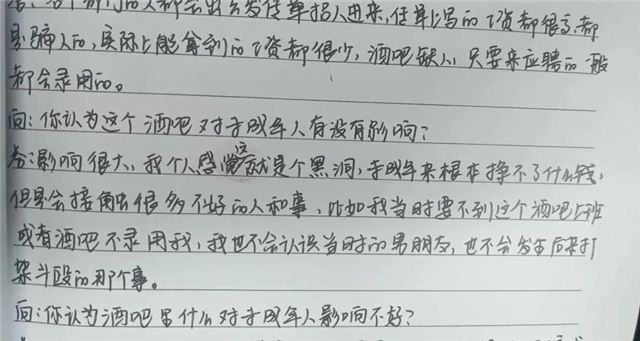 答：各个部门的人都会出去发传单招人进来，传单上写的工资都很高，都
是骗人的，实际上能拿到的工资都很少，酒吧缺人，只要来应聘的一般
都会录用的。
问：你认为这个酒吧对未成年人有没有影响？
答：影响很大，我个人感觉这就是个黑洞，未成年来根本挣不了什么钱，
但是会接触出很多不好的人和事，比如我当时要不到这个酒吧上班
或者酒吧不录用我，我也不会认识当时的男朋友，也不会发生后来打
架斗殴的那个事。
问：你认为酒吧里什么对未成年人影响不好？